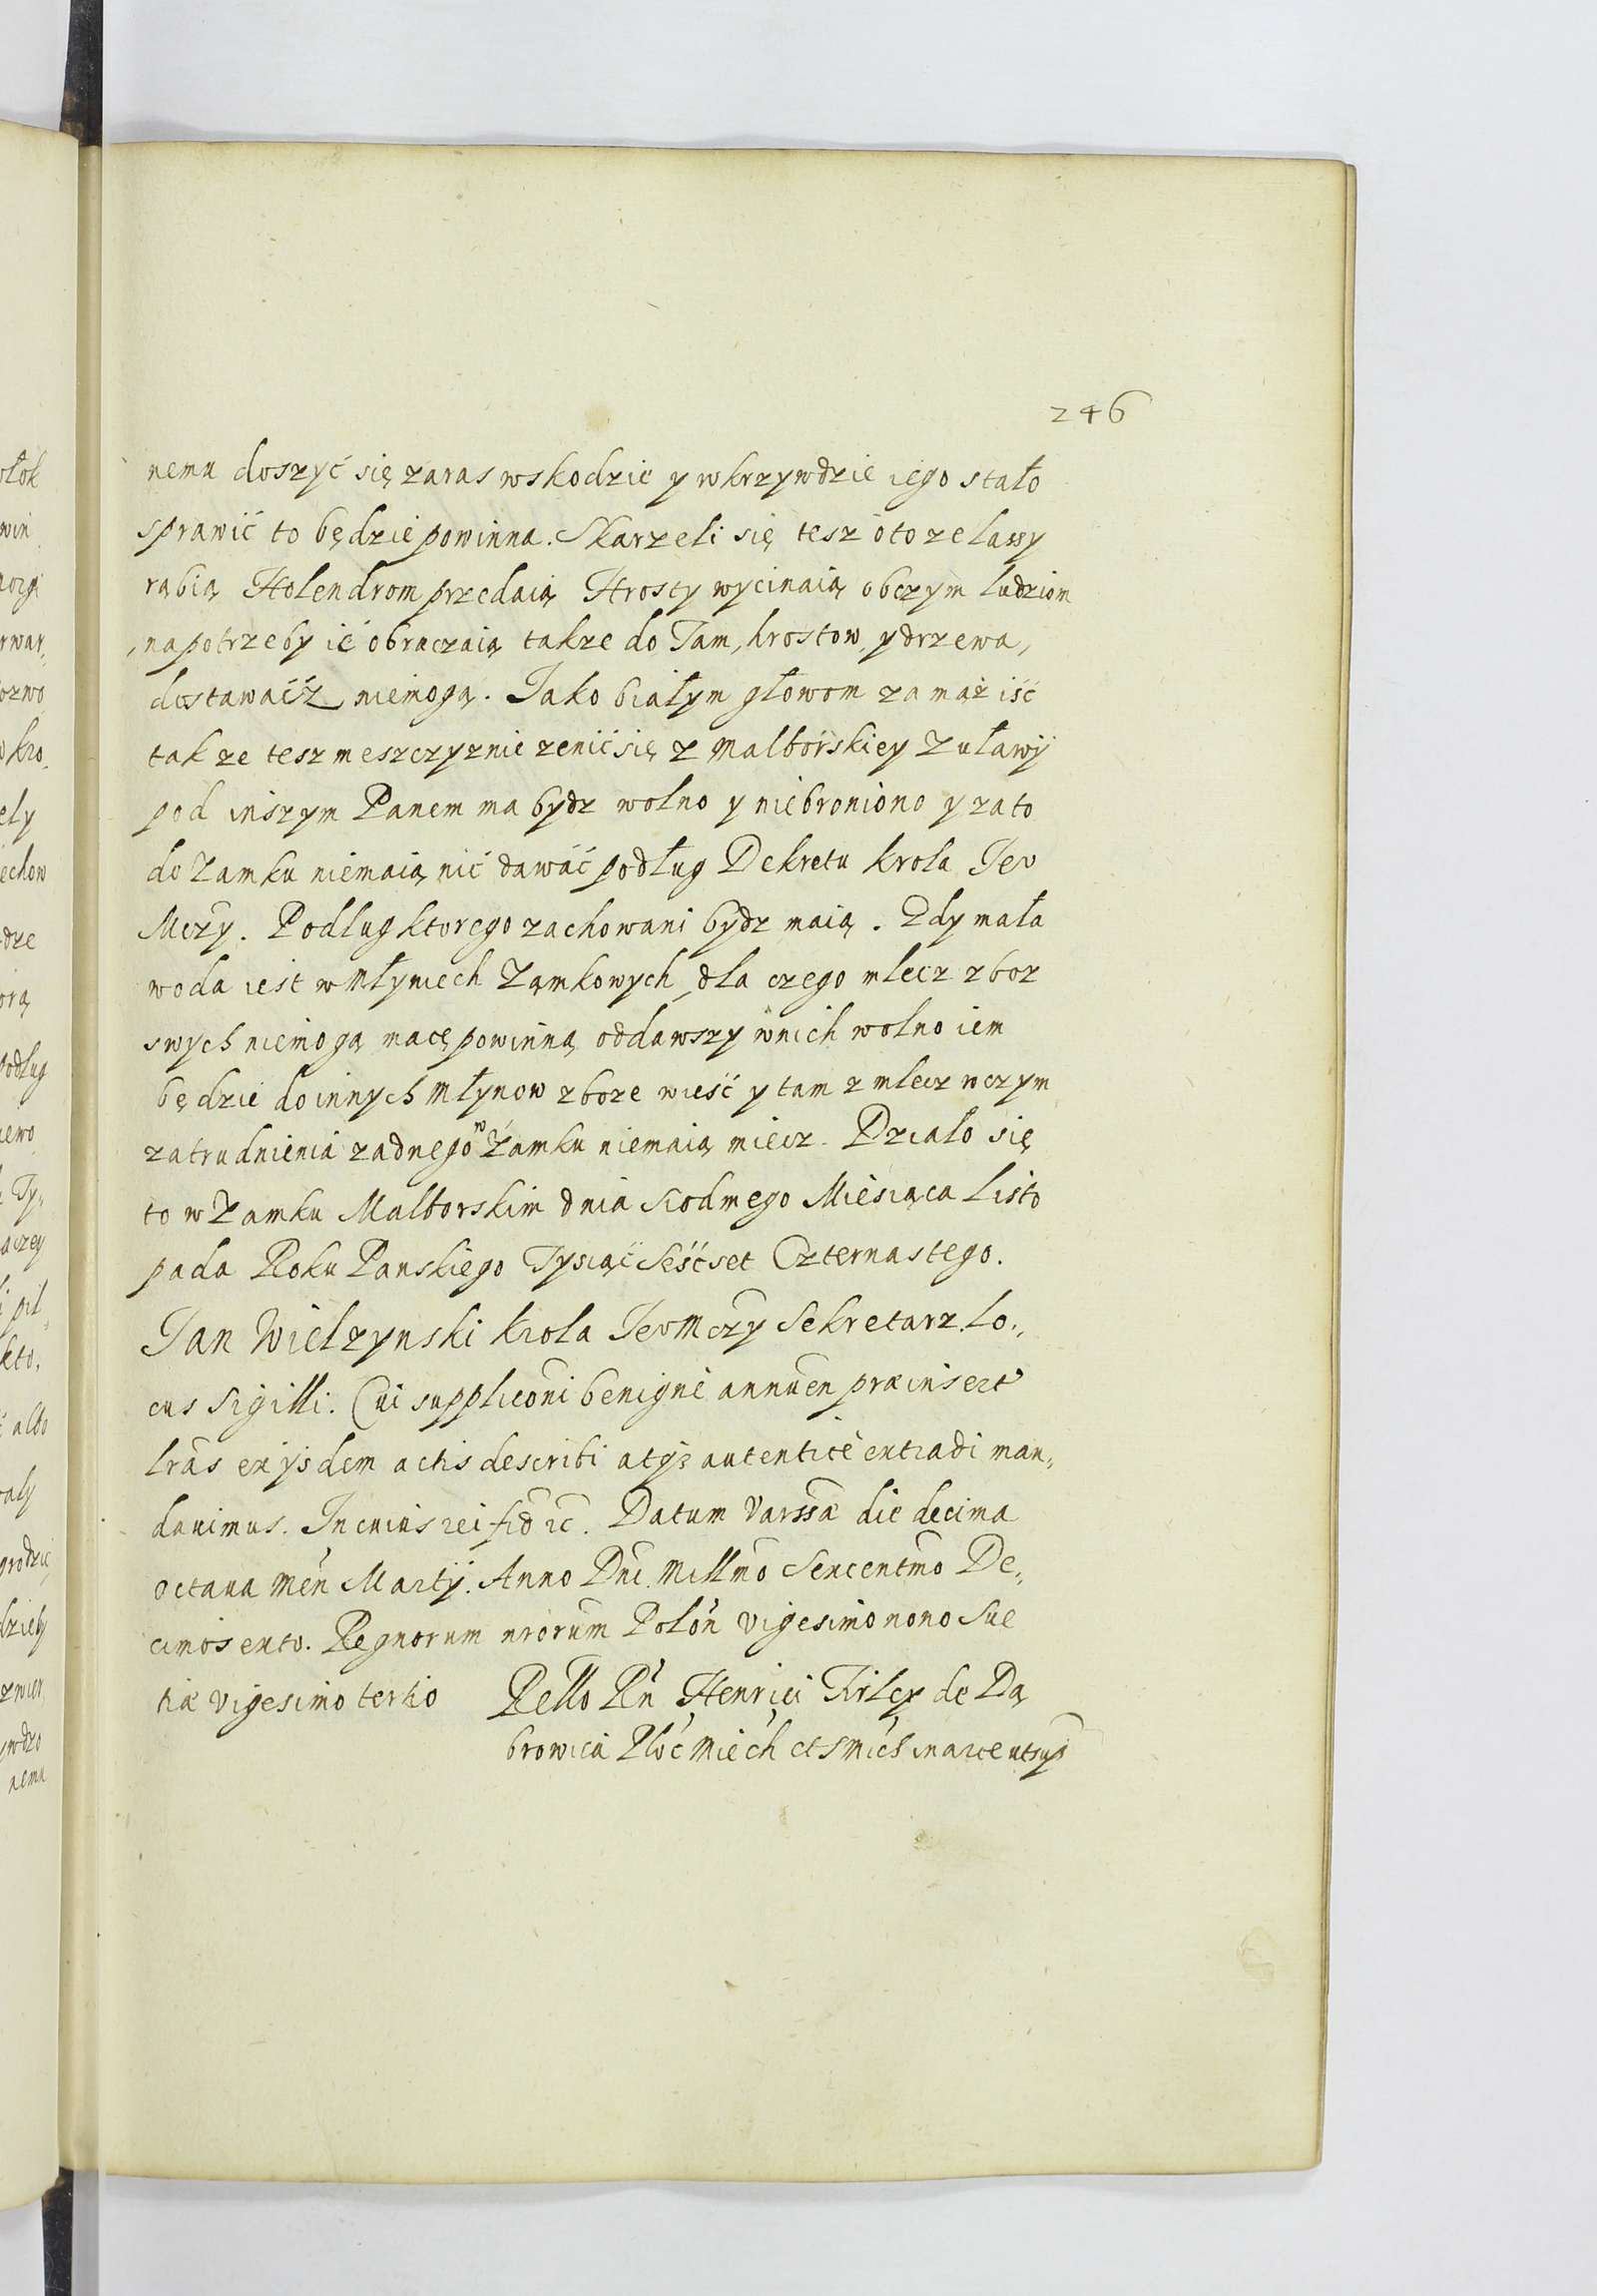 246
nemu doszyć się zaras wskodzie y wkrzywdzie iego stało
sprawić to będzie powinna. Skarzeli się tesz oto ze lassy
rąbią Holendrom przedaią Hrosty wycinaią obczym ludziom
na potrzeby ić obraczaią takze do Tam, hrostow, y drzewa,
dostawać niemogą. Jako białym głowom za mąż iść
tak ze tesz meszczyznie zenić się z Malborskiey Zuławÿ
pod inszym Panem ma bydz wolno y niebroniono y zato
do Zamku niemaią nić dawać podług Dekretu krola Jeo
Mczy. Podlug ktorego zachowani bydz maią. Gdy mała
woda iest w Młyniech Zamkowych, dla czego mlecz zboz
swych niemogą macę powinną oddawszy wnich wolno iem
będzie do innych Młynow zboze wieść y tam z mlecz wczym
zatrudnienia zadnego w Zamku niemaią miecz. Dzialo się
to w Zamku Malborskim dnia siodmego Miesiąca Listo
pada Roku Panskiego Tysiąć Seśćset Czternastego.
Jan Wielzynski krola Jeo Mczy Sekretarz. Lo„
cus Sigilli. Cui suppliconi benigne annuen præinsert
lras ex ijsdem actis describi atqз autentice extradi man„
dauimus. In cuius rei fid rc. Datum Varssæ die decima
octaua Men Martÿ. Anno Dni Millmo Sexcentmo De„
cimosexto. Regnorum nrorum Polon vigesimo nono Sue
tiæ vigesimo tertio Rello Rn Henrici Firley de Dą
browica Ploc Miech et Smich in arce utsup